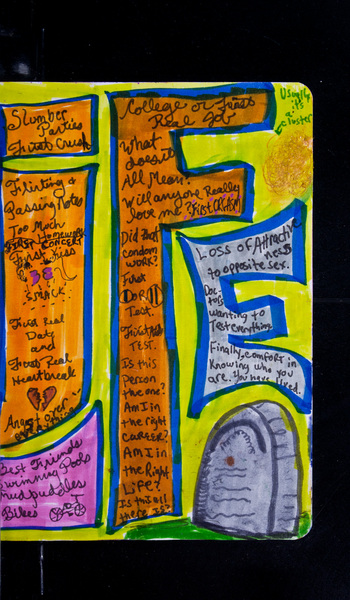 Slumber
Parties
First Crush
Flirting &
Passing Notes
Too Much
Homework
First CONCERT
First Kiss
SMACK
First Real
Date
and
First Real
Heartbreak
Angst over
everything
Best Friends
Swimming Pools
mudpuddles
Bikes
College or First
Real Job
What
does it
All Mean?
Will anyone Really
love me?
First ORGASM
Did that
condom
work?
First
D or
Test.
First
TEST.
Is this
Person
the one?
Am I in
the right
career?
Am I in
the Right
Life?
Is this all
there is?
Usually
it's
a
cluster
Loss of Attractive
ness
to opposite sex.
Doc-
tors
wanting to
Test everything
Finally, comfort in
Knowing who you
are. You have lived.